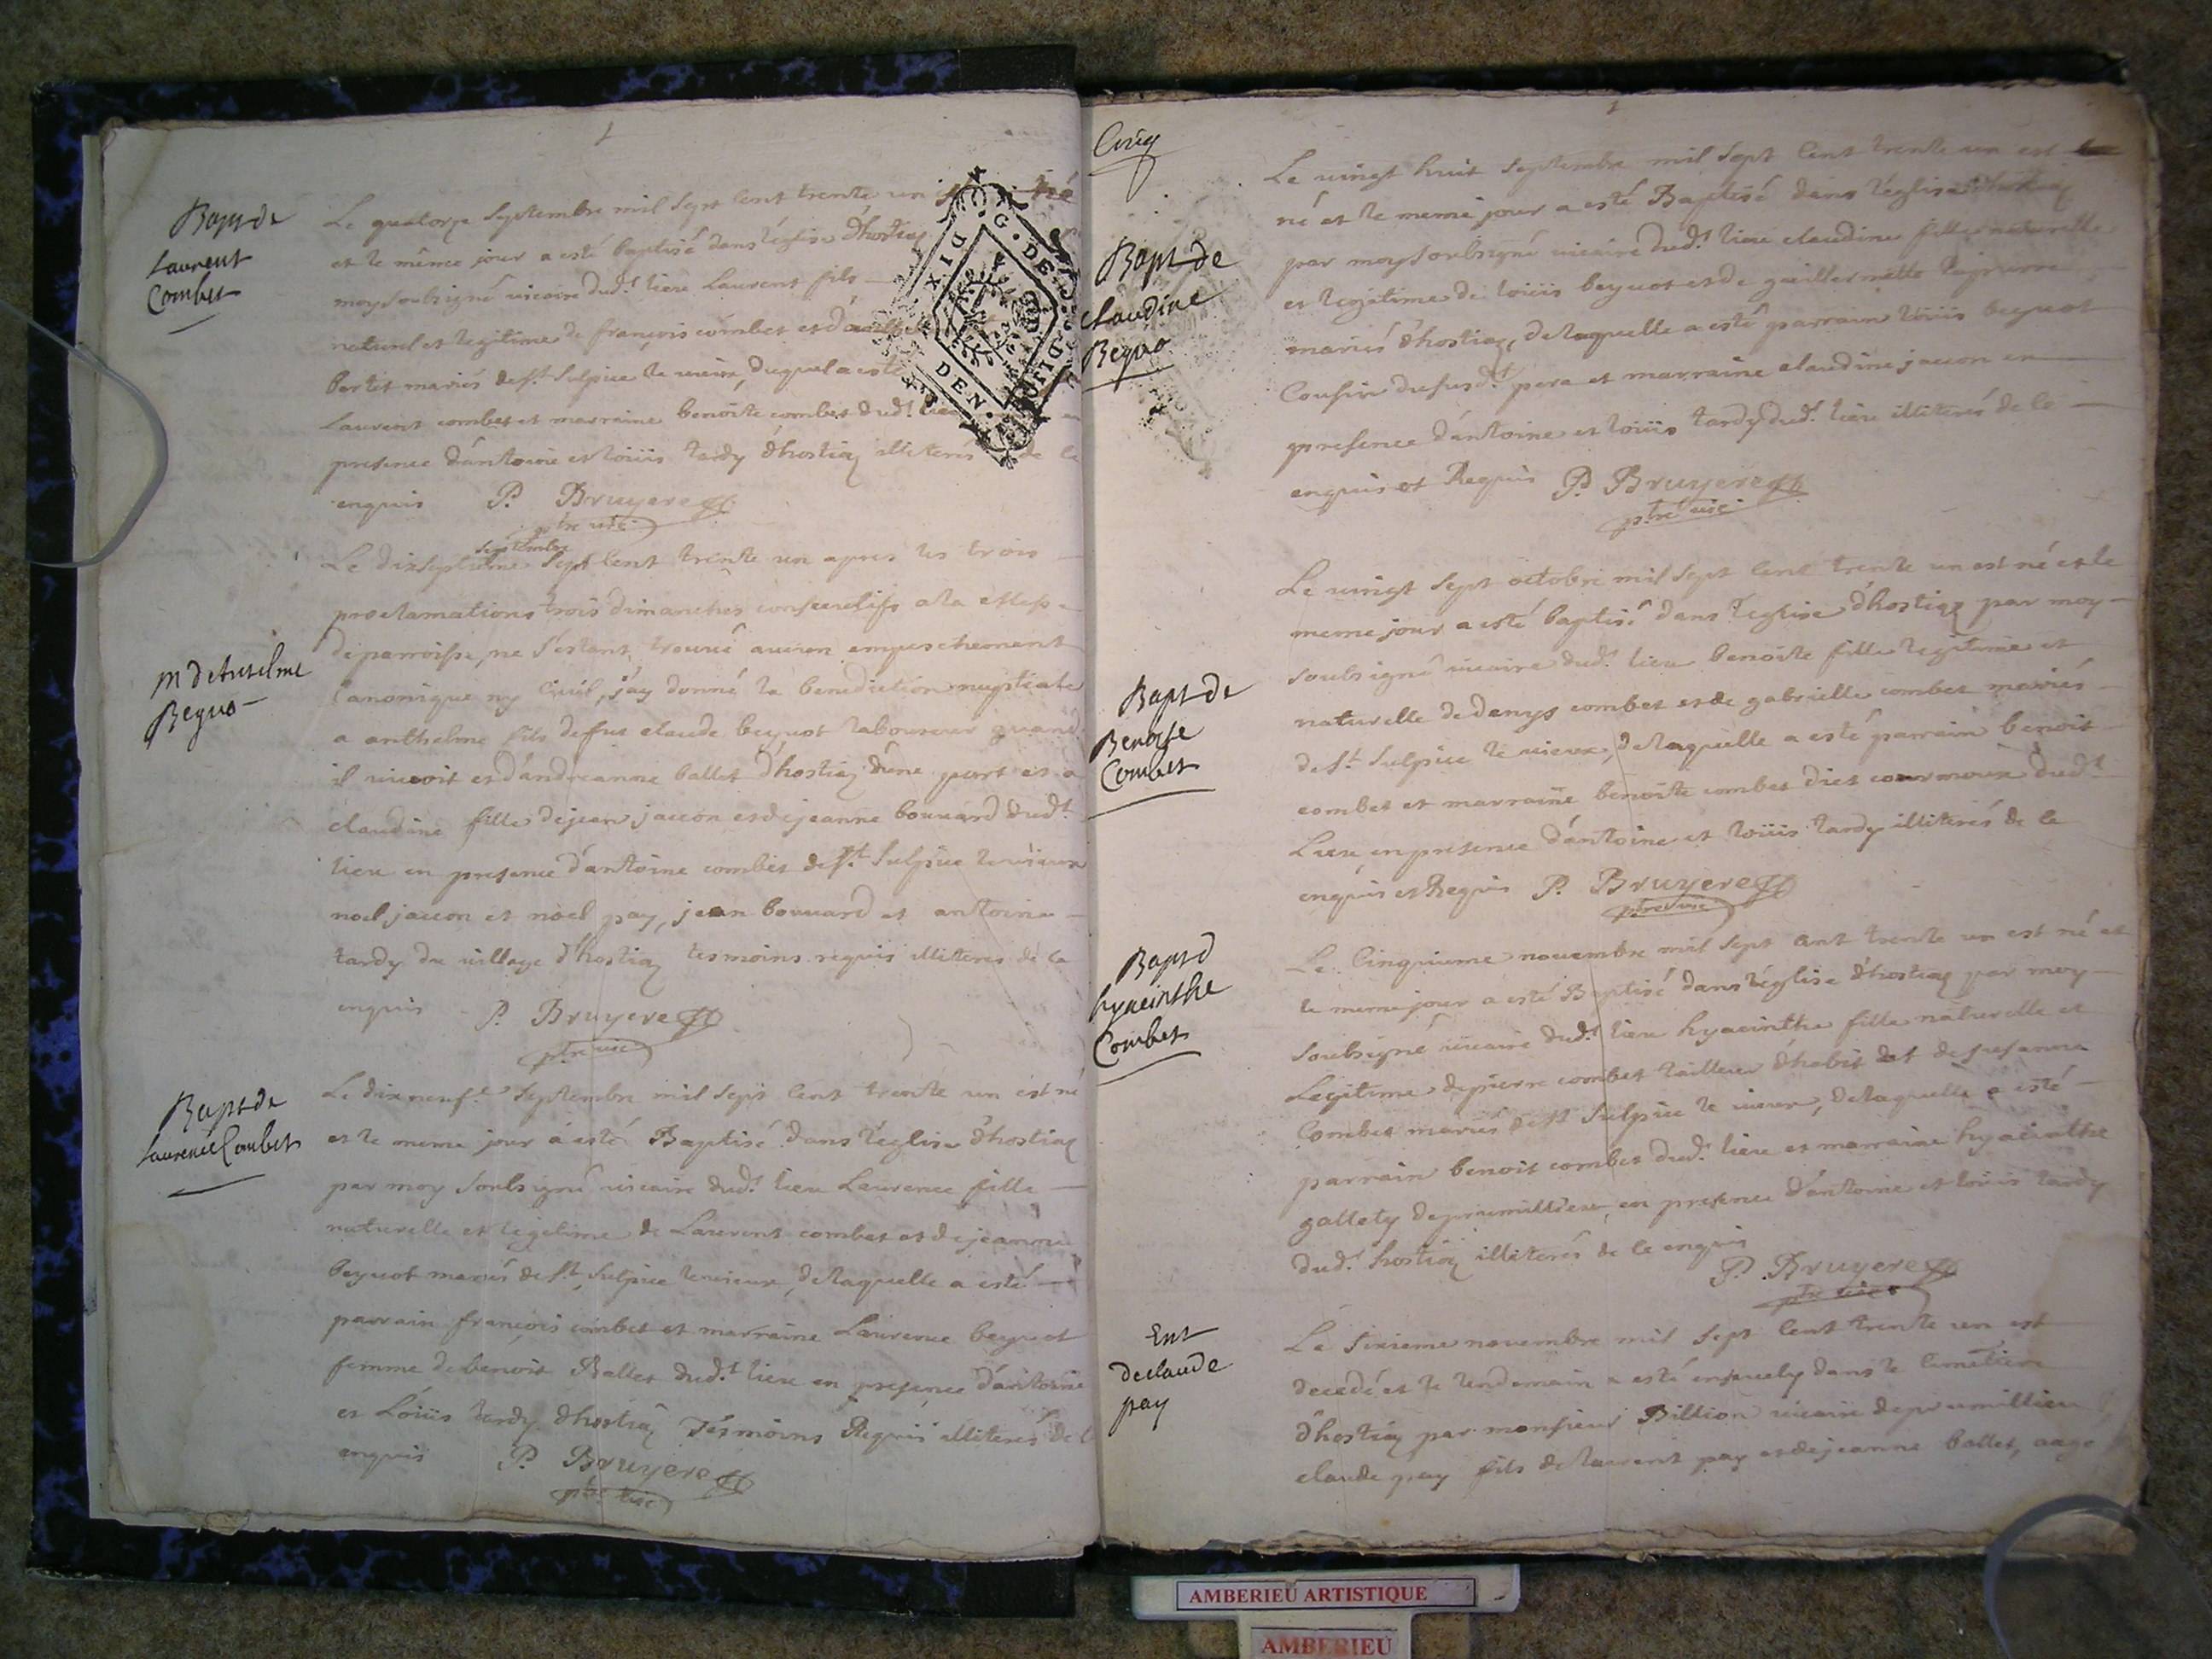 Bapt de
Laurent
Combet
Le quatorze Septembre mil sept cent trente un né
et le même jour a esté baptisé dans l'église d'hostiaz
moy soubsigné vicaire dud.t lieu Laurent fils
naturel et legitime de françois combet et
bertet mariés de st Sulpice le vieux, duquel a esté
Laurent combet et marraine benoite combet dud.t lieu
presence d'antoine et loüis tardy d'hostiaz illiterés de la
enquis P. Bruyere
ptre vic
G. DE
DIX
DEN.
septembre
Le dixseptieme sept cent trente un apres les trois
proclamations trois dimanches consecutifs a la messe
de parroisse, ne s'estant trouvé aucun empeschement
Canonique ny Civil, j'ay donné la benediction nuptiale
M d'Antelme
Beguo
a anthelme fils de feu claude beyuot laboureur quand
il vivoit et d'andreanne ballet d'hostiaz d'une part et a
claudine fille de jean juccon et de jeanne bouvard dud.t
lieu en presence d'antoine combet de st Sulpice le vieux
noel juccon et noel pay, jean bouvard et antoine
tardy du village d'hostiaz tesmoins requis illiteres de la
enquis P. Bruyere
ptre vic
Bapt de
Laurence Combet
Le dix neuf.e Septembre mil sept cent trente un est né
et le meme jour a esté Baptisé dans l'église d'hostiaz
par moy soubsigné vicaire dud.t lieu Laurence fille
naturelle et legitime de Laurent combet et de jeanne
beyuot mariés de st Sulpice le vieux, de laquelle a esté
parrain françois combet et marraine Laurence beyuot
femme de benoit Ballet dud.t lieu en presence d'antoine
et Loüis tardy d'hostiaz Tesmoins Requis illiterés de l
enquis P. Bruyere
ptre vic
Cinq
Bapt de
claudine
Beguo
Le vingt huit septembre mil sept cent trente un est
né et le meme jour a esté Baptisé dans l'église d'hostiaz
par moy soubsigné vicaire dud.t lieu claudine fille naturelle
et legitime de loüis beyuot et de guillermette
mariés d'hostiaz, de laquelle a esté parrain loüis beyuot
Cousin du susd.t pere et marraine claudine juccon en
presence d'antoine et loüis tardy dud.t lieu illiterés de le
enquis et Requis P. Bruyere
ptre vic
Bapt de
Benoite
Combet
Le vingt sept octobre mil sept cent trente un est né et le
meme jour a esté baptisé dans l'église d'hostiaz par moy
soubsigné vicaire dud.t lieu benoite fille legitime et
naturelle de denys combet et de gabrielle combet mariés
de st Sulpice le vieux, de laquelle a esté parrain benoit
combet et marraine benoite combet dud.t
Lieu en presence d'antoine et loüis tardy illiterés de le
enquis et Requis P. Bruyere
ptre vic
Bapt d
hyacinthe
Combet
Le Cinquieme novembre mil sept cent trente un est né et
le meme jour a esté Baptisé dans l'église d'hostiaz par moy
soubsigné vicaire dud.t lieu hyacinthe fille naturelle et
Legitime de pierre combet tailleur d'habit et de susanne
Combet mariés de st Sulpice le vieux, de laquelle a esté
parrain benoit combet dud.t lieu et marraine hyacinthe
gallety de prumillieu, en presence d'antoine et loüis tardy
dud.t hostiaz illiterés de le enquis
P. Bruyere
ptre vic
Ent
de claude
pay
Le sixieme novembre mil sept cent trente un est
decedé et le lendemain a esté ensevely dans le Cimetiere
d'hostiaz par monsieur Billion vicaire de prumillieu
claude pay fils de laurent pay et de jeanne ballet, aage
AMBERIEU ARTISTIQUE
AMBERIEU